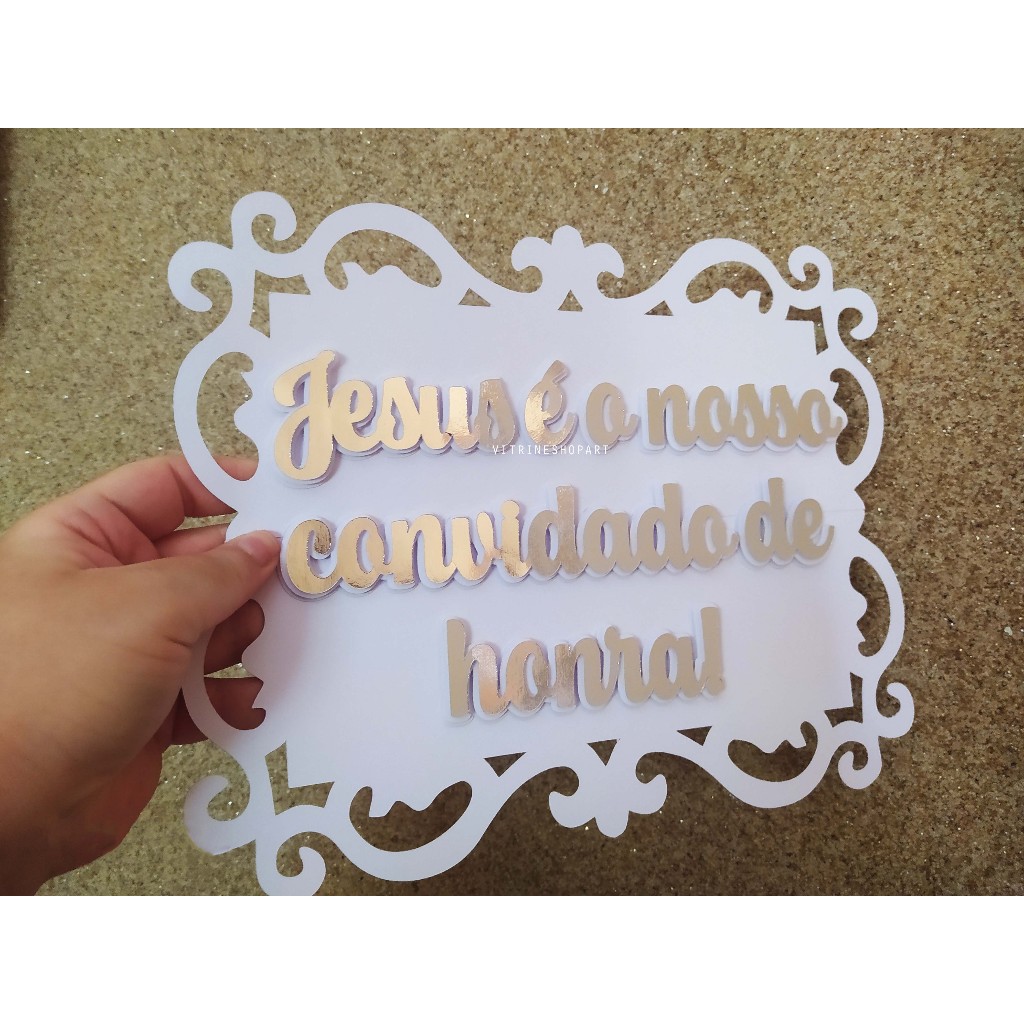 Jesus é o nosso
VITRINESHOPART
convidado de
honra!